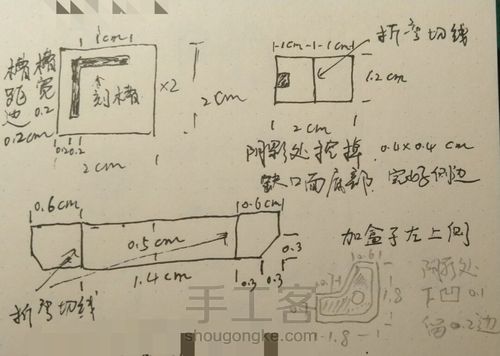 1cm
槽距边0.2cm
槽宽0.2
刻槽
×2
2cm
0.2 0.2
2cm
1cm 1cm
折弯切线
1.2cm
2cm
阴影处挖掉 0.4×0.4cm
缺口面底部, 完好侧边
0.6cm
0.6cm
0.5cm
1.4cm
0.3
0.3 0.3
折弯切线
加盒子左上侧
阴影处
下凹 0.1
留0.2边
0.6
1.8
1.8
手工客
shougongke.com